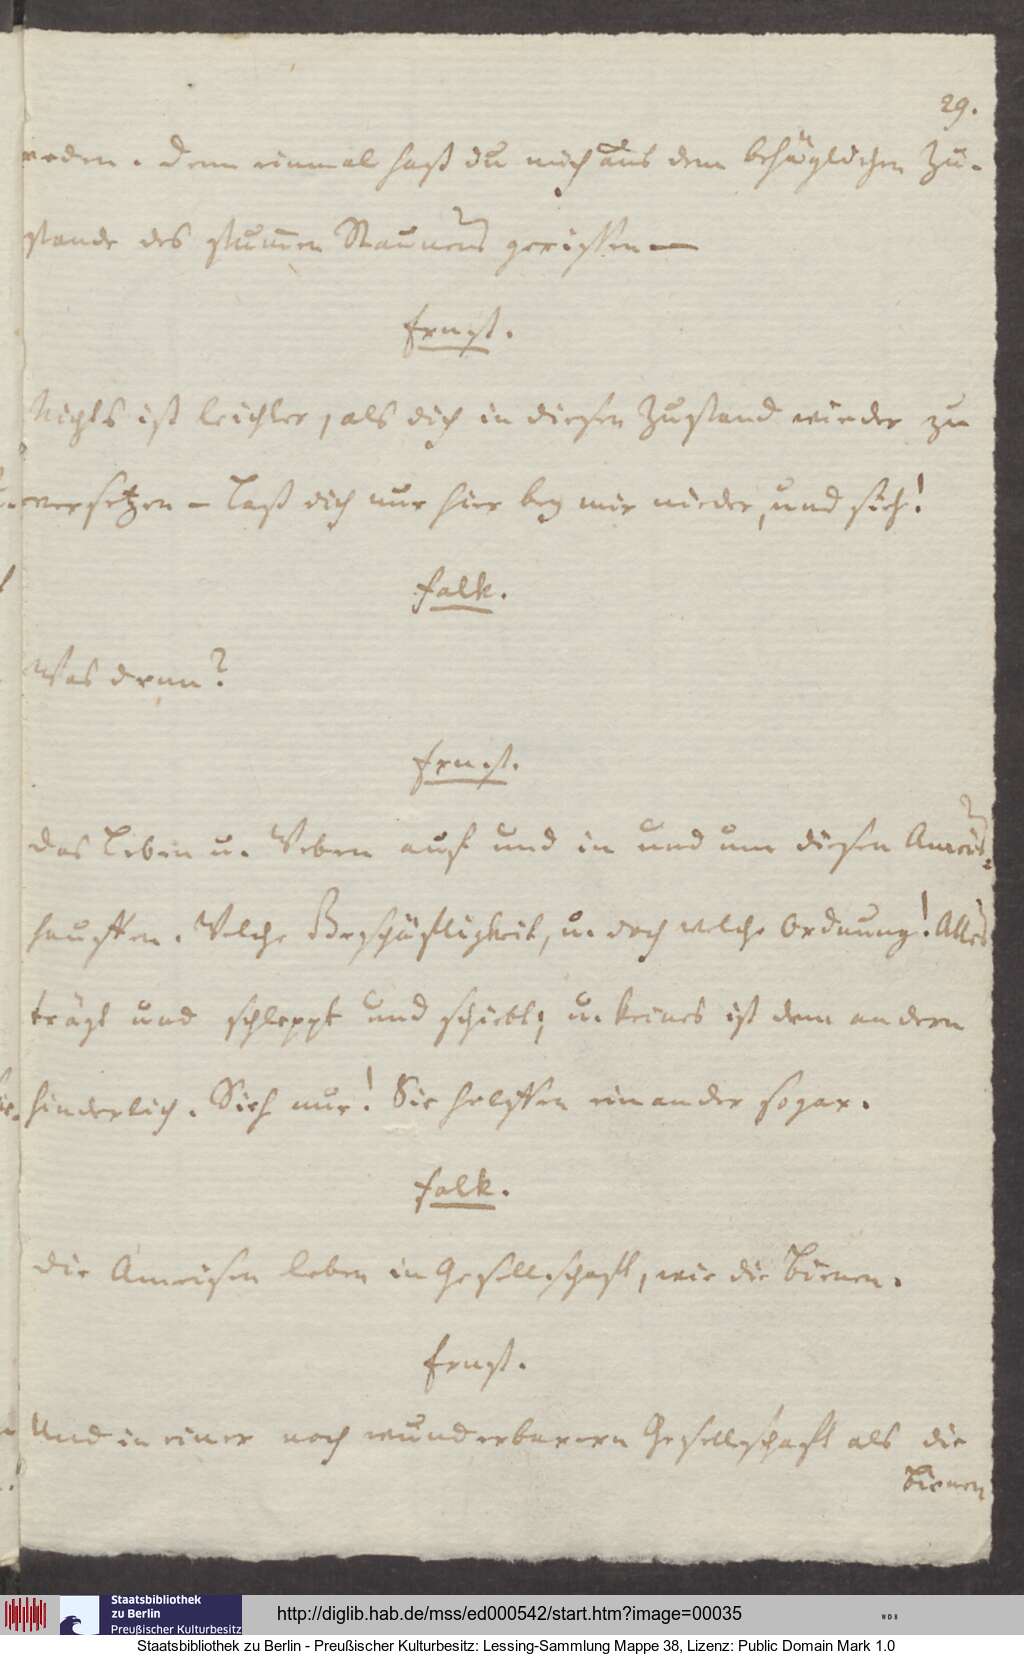 29.
reden. Denn einmal hast du mich aus dem behäglichen Zu-
stande des stum̄en Staunens gerissen —
Ernst.
Nichts ist leichter, als dich in diesen Zustand wieder zu
versetzen – Laß dich nur hier bey mir nieder, und sieh!
Falk.
Was denn?
Ernst.
Das Leben u. Weben auf und in und um diesen Ameis-
hauffen. Welche Geschäftigkeit, u. doch welche Ordnung! Alles
trägt und schleppt und schiebt; u. keines ist dem andern
hinderlich. Sieh nur! Sie helffen einander sogar.
Falk.
Die Ameisen leben in Gesellschaft, wie die Bienen.
Ernst.
Und in einer noch wunderbarern Gesellschaft als die
Bienen
Staatsbibliothek
zu Berlin
Preußischer Kulturbesitz
http://diglib.hab.de/mss/ed000542/start.htm?image=00035
WDB
Staatsbibliothek zu Berlin - Preußischer Kulturbesitz: Lessing-Sammlung Mappe 38, Lizenz: Public Domain Mark 1.0